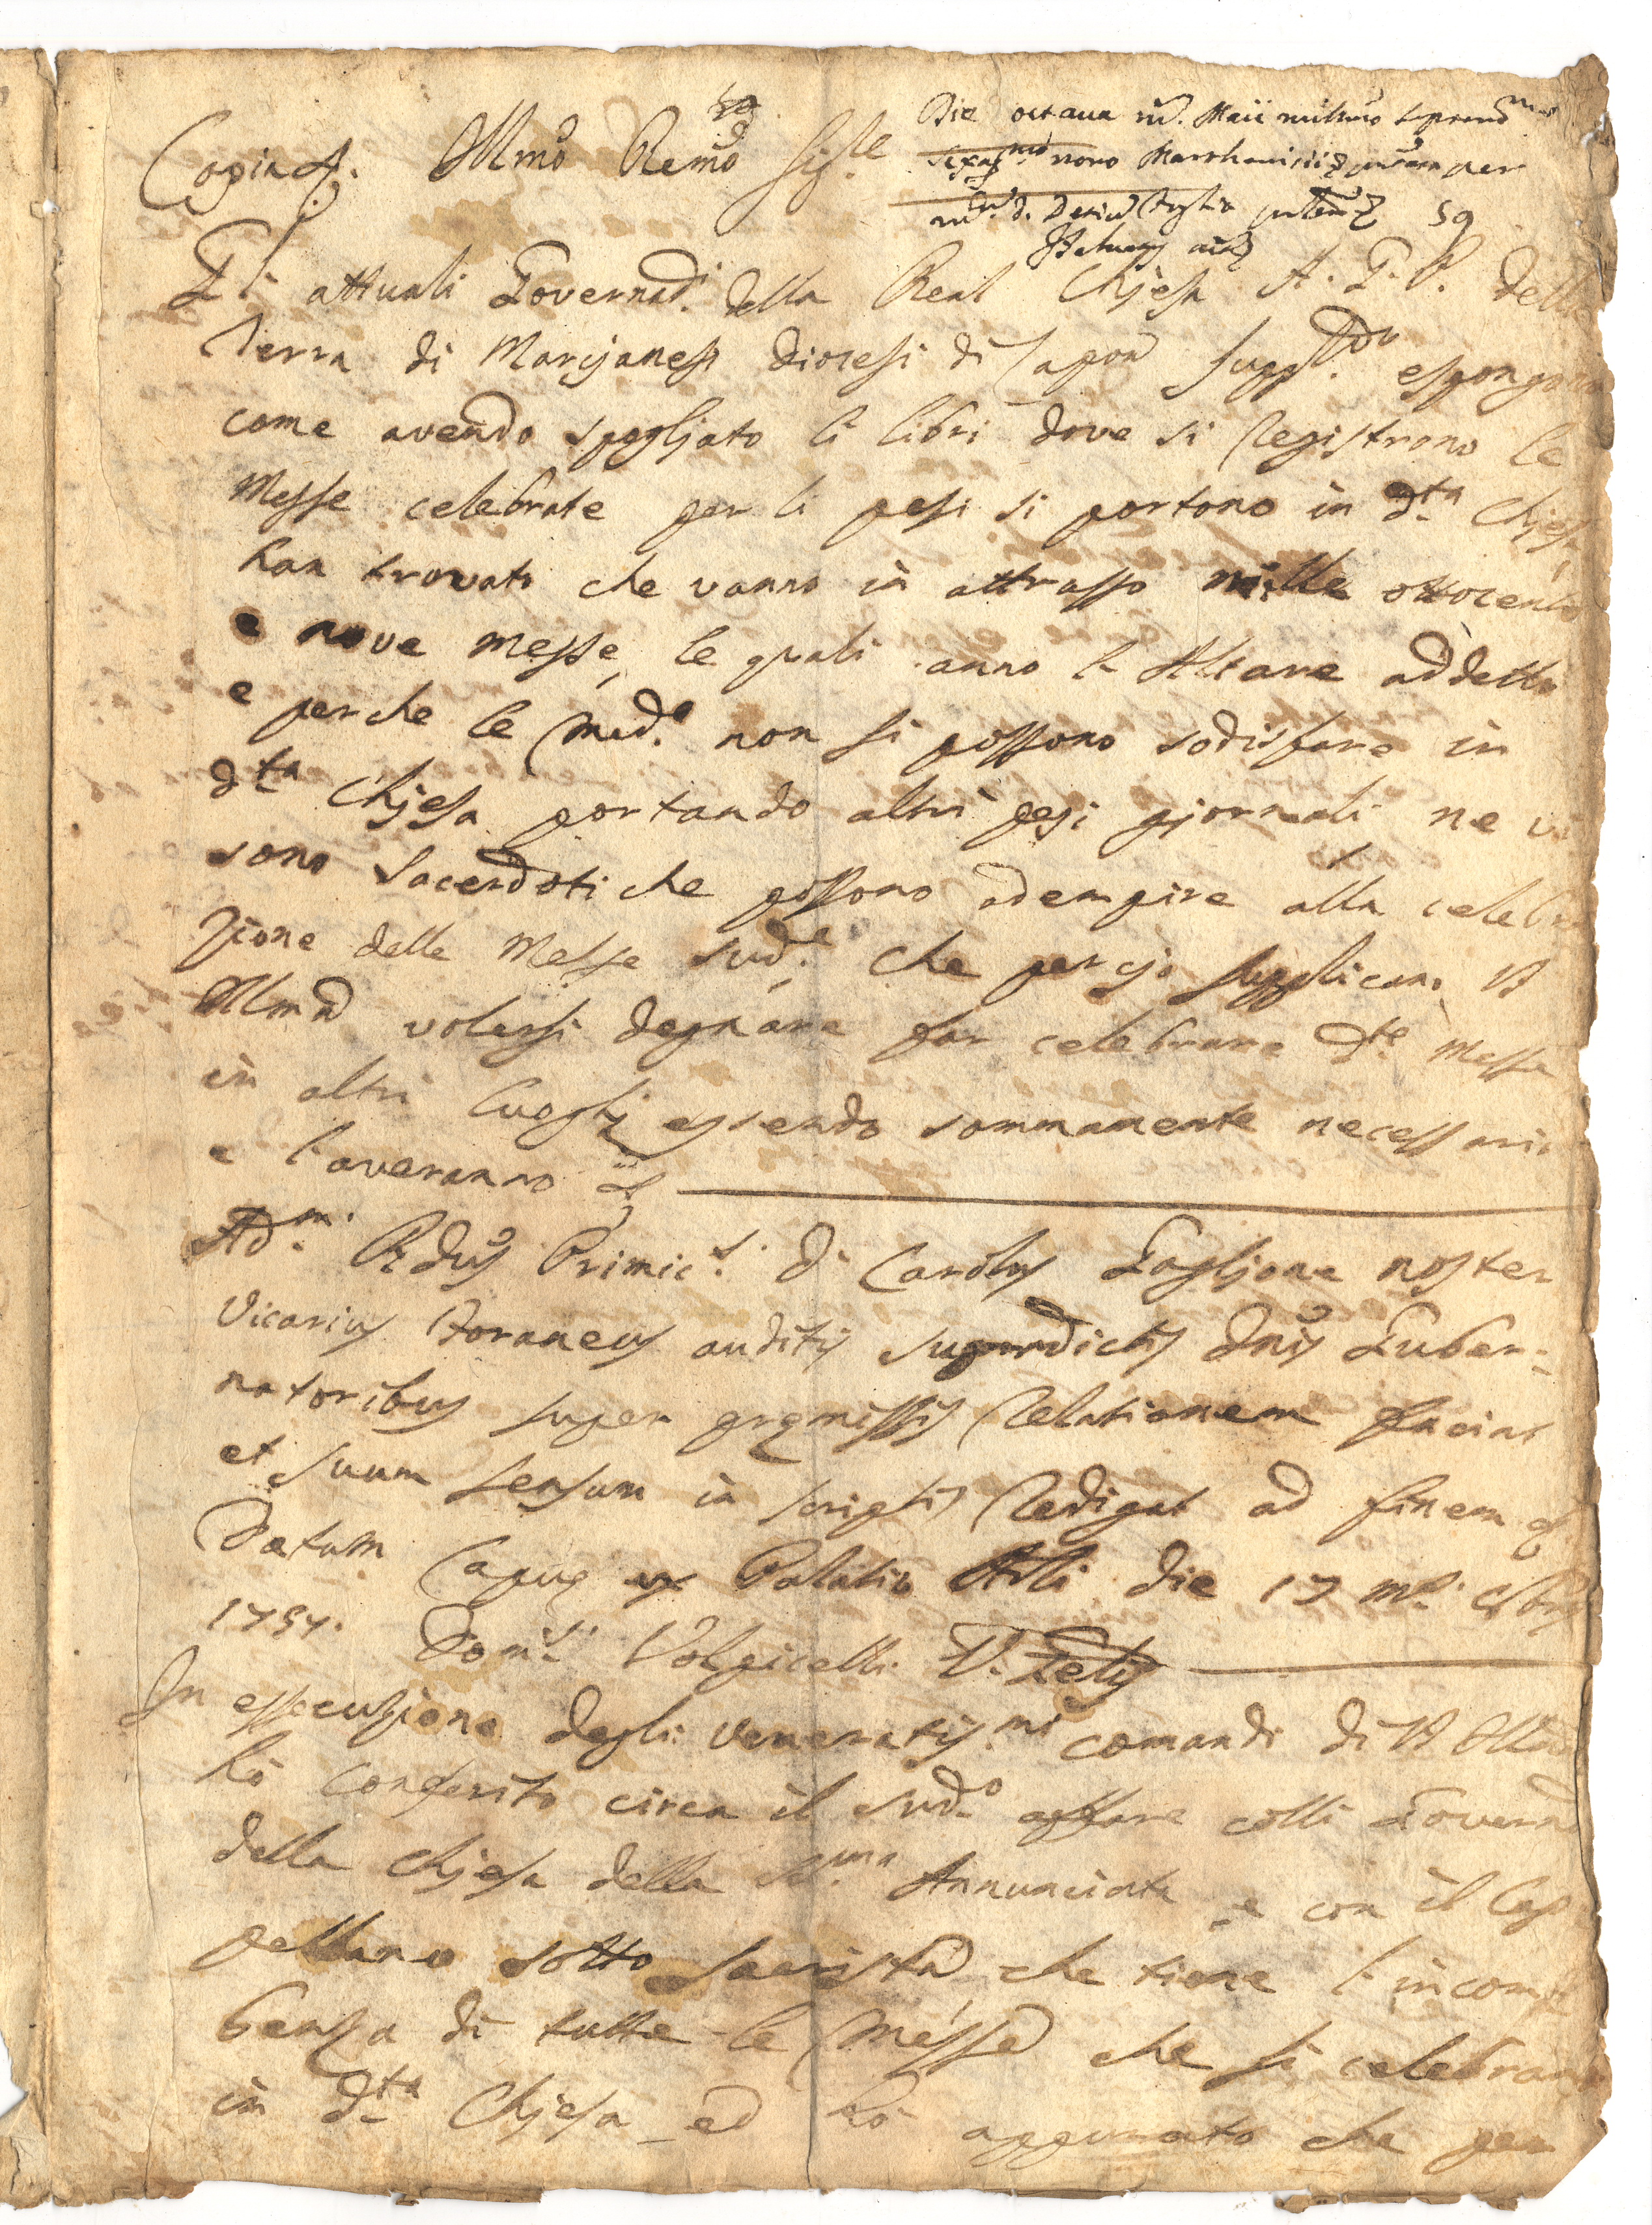 Copia &. Illmo Remo Sig.re
Die octava m. Maii millmo septcend.mo
nono per
59
Gl' attuali Governad.i della Real Chjesa A. G. P. della
Terra di Marcjanesi Diocesi di Capoa espongono
come avendo spogljato li libri dove si registrono le
Messe celebrate per li pesi si portono in d.ta Chjesa
han trovato che vanno in attrasso mille ottocento
e nove messe, le quali anno l' Altare addetto
e perche le med.e non si possono sodisfare in
d.ta Chjesa portando altri pesi gjornali ne vi
sono Sacerdoti che possono adempire alla celebra
zione delle Messe sud.e che percjo supplicano V.S.
Illma volersi degnare far celebrare d.te Messe
in altri luoghj essendo sommamente necessario
e l'averanno &
Ad.m Rdus Primic.s D. Carolus Gagljone noster
Vicarius Foraneus auditis supradictis Dnis Guber=
natoribus super premissis relationem faciat
et suum sensum in scriptis redigat ad finem &
Datum Capue ex Palatio Arli die 17 m.s
1757. Dom.s Volpicelli V. Glis
In essecuzione degli veneratis.mi comandi di V.S. Illma
hò conferito circa il sud.o affare colli Governad
della Chjesa della SS.ma Annunciata e con il Cap
pellano sotto Sacrista che tiene l'incom
benza di tutte le Messe che si celebrano
in d.ta Chjesa ed hò appurato che per